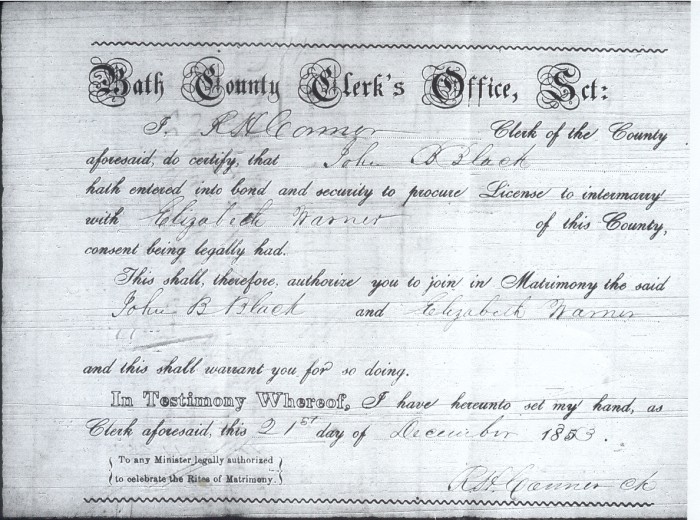 Bath County Clerk's Office, Sct:
I, R H Conner Clerk of the County
aforesaid, do certify, that John B Black
hath entered into bond and security to procure License to intermarry
with Elizabeth Warner of this County,
consent being legally had.
This shall, therefore, authorize you to join in Matrimony the said
John B Black and Elizabeth Warner
and this shall warrant you for so doing.
In Testimony Whereof, I have hereunto set my hand, as
Clerk aforesaid, this 21st day of December 1853.
To any Minister legally authorized
to celebrate the Rites of Matrimony.
R H Conner Ck